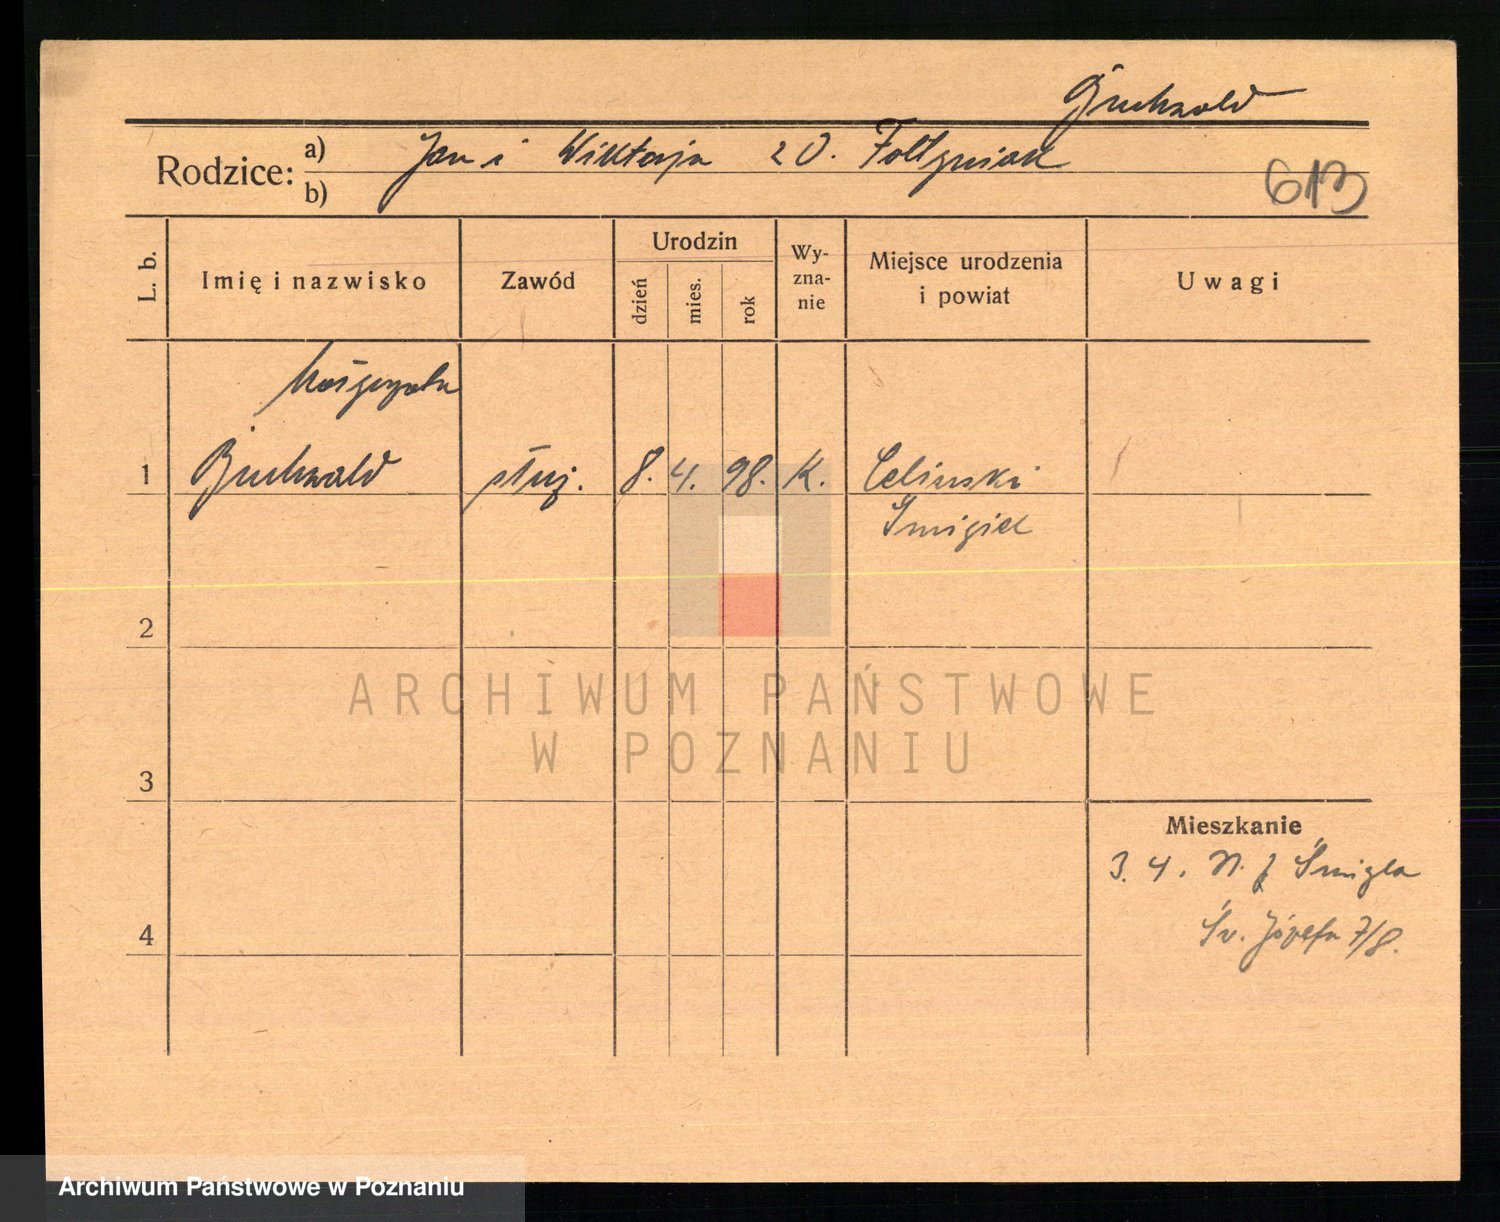 Buchwald
Rodzice: a) Jan i Wiktorja z D. Foltyniak
b)
613
L. b. Imię i nazwisko Zawód Urodzin dzień mies. rok Wy-zna-nie Miejsce urodzenia i powiat Uwagi
Małgorzata
1 Buchwald służ. 8. 4. 98. K. Celinski
Śmigiel
2
ARCHIWUM PAŃSTWOWE
W POZNANIU
3
Mieszkanie
3. 4. z Śmigla
4 Św. Józefa 7/8.
Archiwum Państwowe w Poznaniu